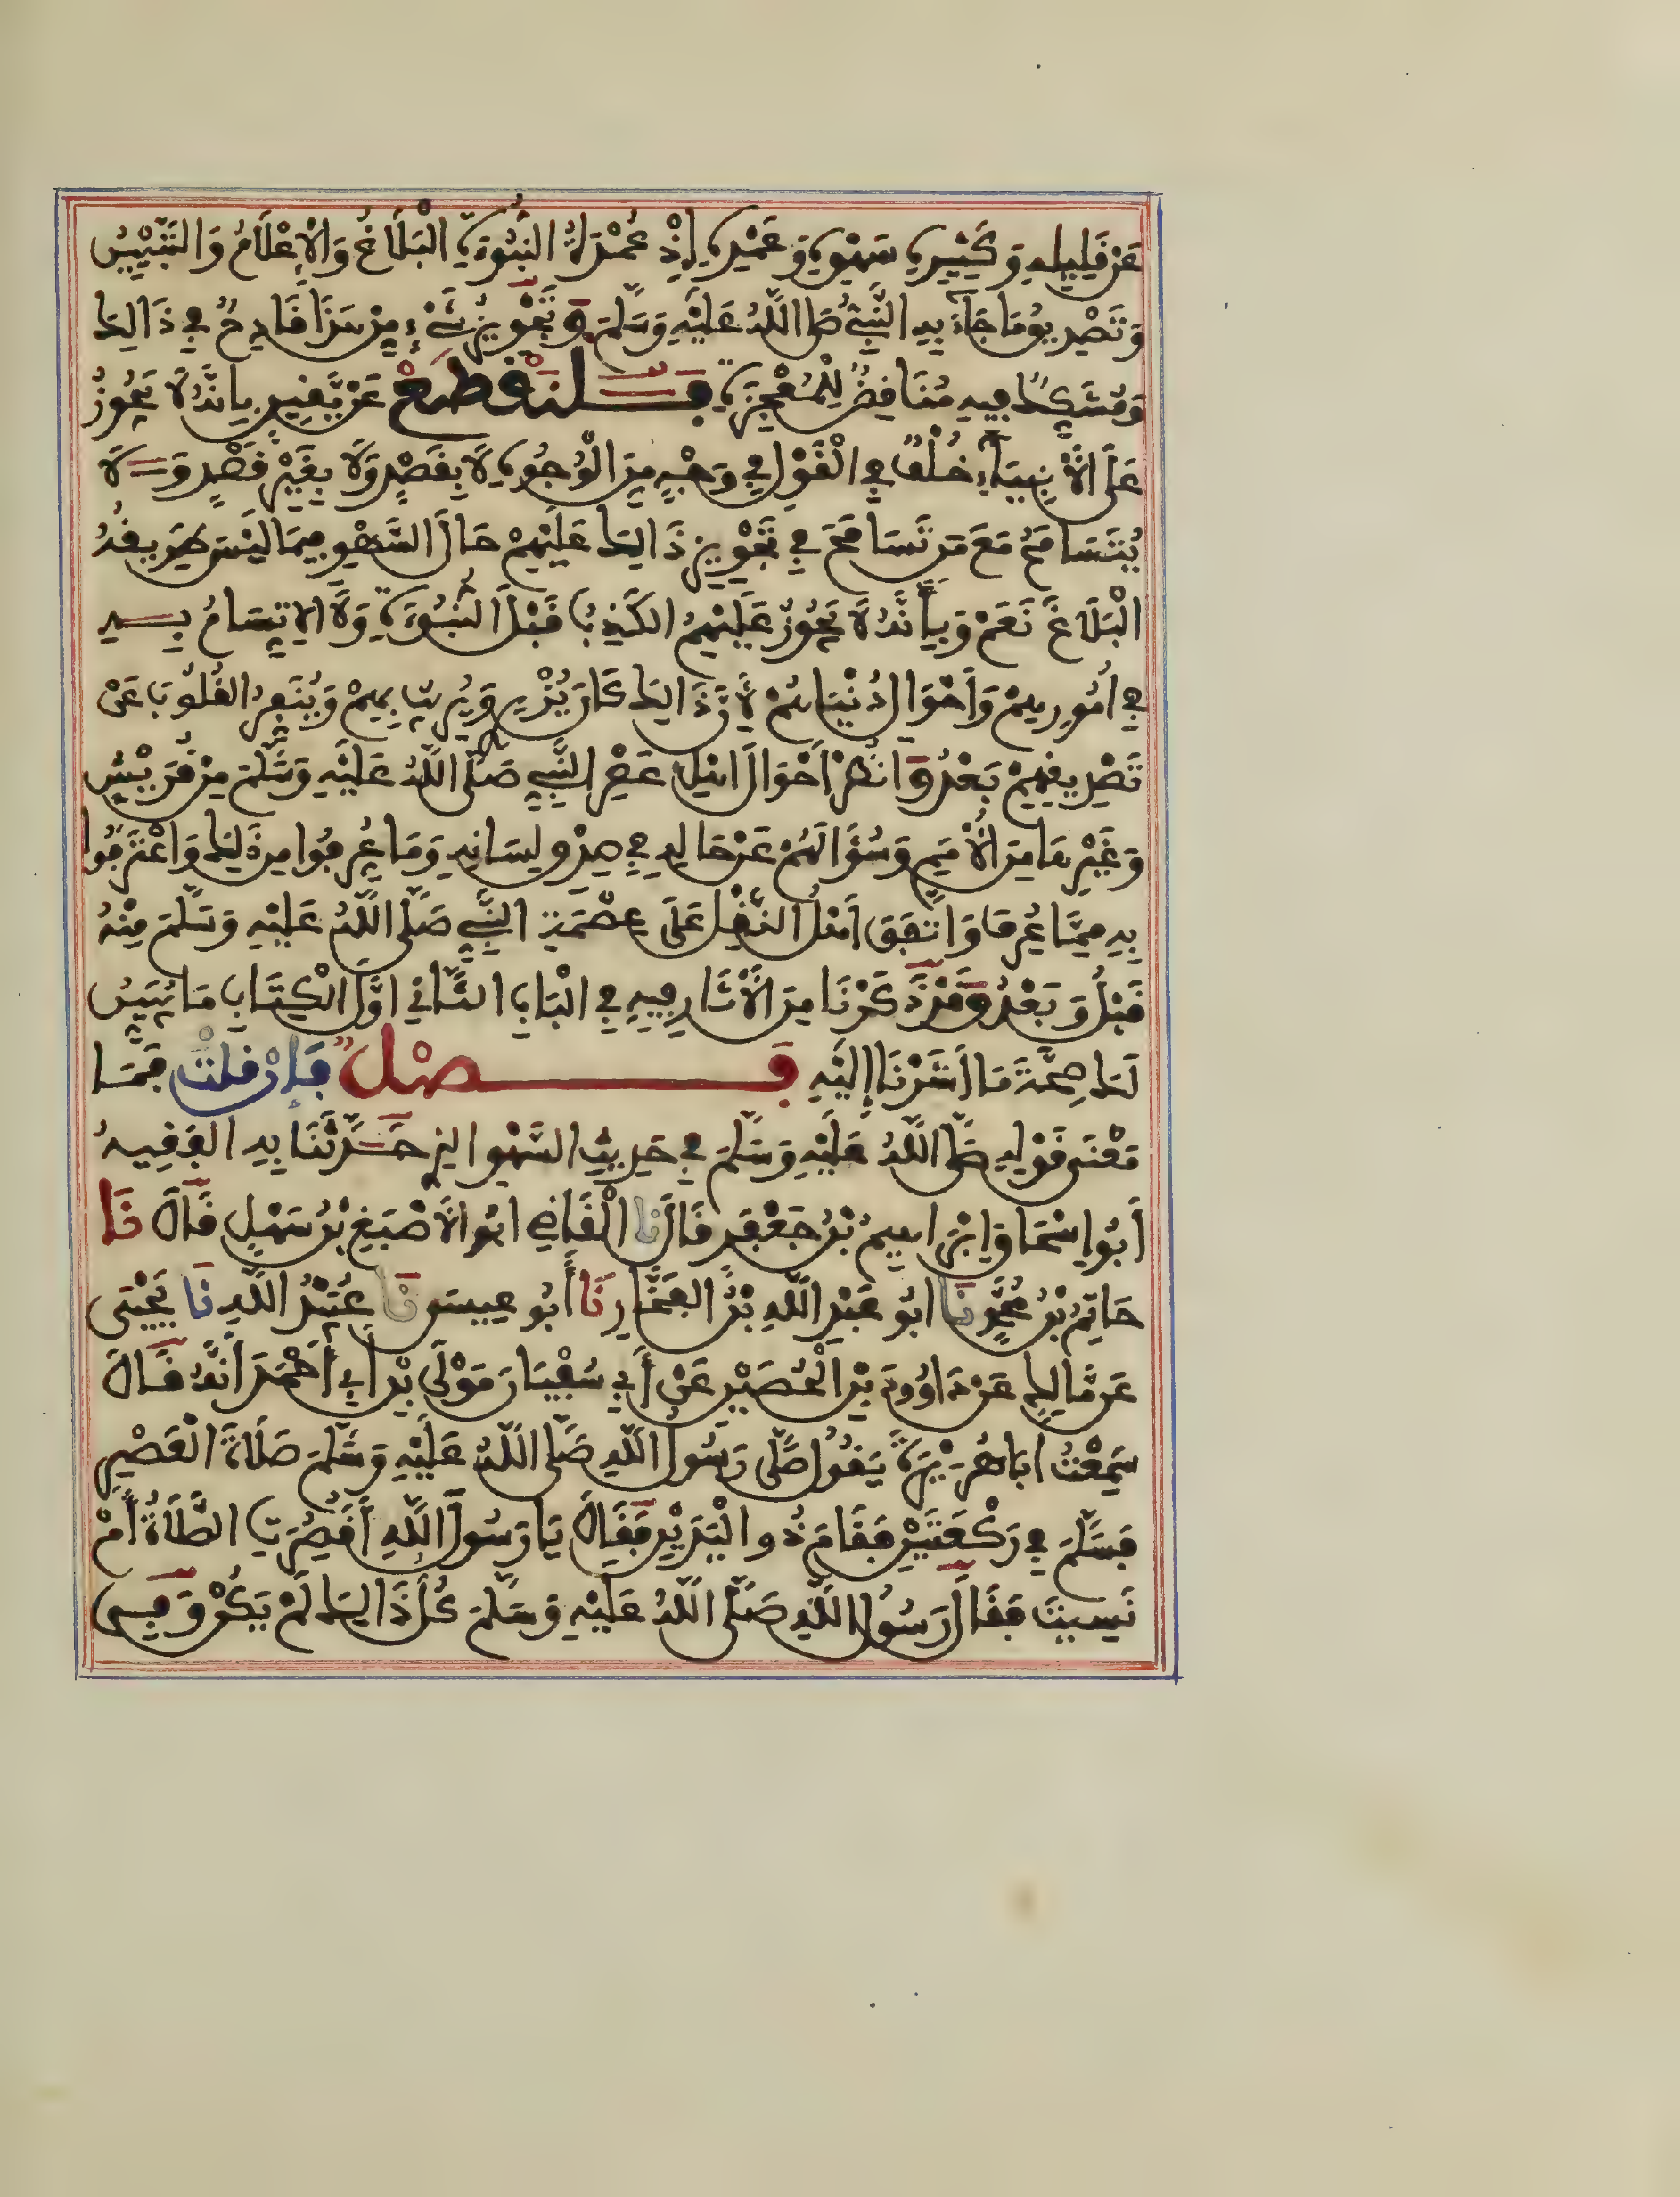 عَن قَلِيلِهِ وَكَثِيرِهِ سَهْوِهِ وَعَمْدِهِ إِذْ عُمْدَةُ النُّبُوَّةِ الْبَلَاغُ وَالْإِعْلَامُ وَالتَّبْيِينُ
وَتَصْدِيقُ مَا جَاءَ بِهِ النَّبِيُّ صَلَّى اللَّهُ عَلَيْهِ وَسَلَّمَ وَتَجْوِيزُ شَيْءٍ مِنْ هَذَا قَادِحٌ فِي ذَالِكَ
وَمُشَكِّكٌ فِيهِ مُنَاقِضٌ لِلْمُعْجِزَةِ فَلْنَقْطَعْ عَنْ يَقِينٍ بِأَنَّهُ لَا يَجُوزُ
عَلَى الْأَنْبِيَاءِ خُلْفٌ فِي الْقَوْلِ فِي وَجْهٍ مِنَ الْوُجُوهِ لَا بِقَصْدٍ وَلَا بِغَيْرِ قَصْدٍ وَلَا
يُتَسَامَحُ مَعَ مَن تَسَامَحَ فِي تَجْوِيزِ ذَالِكَ عَلَيْهِمْ حَالَ السَّهْوِ فِيمَا لَيْسَ طَرِيقُهُ
الْبَلَاغَ نَعَمْ وَبِأَنَّهُ لَا يَجُوزُ عَلَيْهِمُ الْكَذِبُ قَبْلَ النُّبُوَّةِ وَلَا الِاتِّسَامُ بِهِ
فِي أُمُورِهِمْ وَأَحْوَالِ دُنْيَاهُمْ لِأَنَّ ذَالِكَ كَانَ يُزْرِي وَيُرِيبُ بِهِمْ وَيُنَفِّرُ الْقُلُوبَ عَنْ
تَصْدِيقِهِمْ بَعْدُ وَانْظُرْ أَحْوَالَ أَهْلِ عَصْرِ النَّبِيِّ صَلَّى اللَّهُ عَلَيْهِ وَسَلَّمَ مِنْ قُرَيْشٍ
وَغَيْرِهَا مِنَ الْأُمَمِ وَسُؤَالَهُمْ عَنْ حَالِهِ فِي صِدْقِ لِسَانِهِ وَمَا عُرِفُوا مِن ذَلِكَ وَاعْتَرَفُوا
بِهِ مِمَّا عُرِفَ وَاتَّفَقَ أَهْلُ النَّقْلِ عَلَى عِصْمَةِ النَّبِيِّ صَلَّى اللَّهُ عَلَيْهِ وَسَلَّمَ مِنْهُ
قَبْلُ وَبَعْدُ وَقَدْ ذَكَرْنَا مِنَ الْآثَارِ فِيهِ فِي الْبَابِ الثَّانِي أَوَّلَ الْكِتَابِ مَا يُبَيِّنُ
لَكَ صِحَّةَ مَا أَشَرْنَا إِلَيْهِ فَصْلٌ فَإِن قُلْتَ فَمَا
مَعْنَى قَوْلِهِ صَلَّى اللَّهُ عَلَيْهِ وَسَلَّمَ فِي حَدِيثِ السَّهْوِ الَّذِي حَدَّثَنَا بِهِ الْفَقِيهُ
أَبُو إِسْحَاقَ إِبْرَاهِيمُ بْنُ جَعْفَرٍ قَالَ نَا الْقَاضِي أَبُو الْأَصْبَغِ بْنُ سَهْلٍ قَالَ نَا
حَاتِمُ بْنُ مُحَمَّدٍ نَا أَبُو عَبْدِ اللَّهِ بْنُ الْفَخَّارِ نَا أَبُو عِيسَى نَا عُبَيْدُ اللَّهِ نَا يَحْيَى
عَن مَالِكٍ عَن دَاوُودَ بْنِ الْحُصَيْنِ عَنْ أَبِي سُفْيَانَ مَوْلَى بْنِ أَبِي أَحْمَدَ أَنَّهُ قَالَ
سَمِعْتُ أَبَا هُرَيْرَةَ يَقُولُ صَلَّى رَسُولُ اللَّهِ صَلَّى اللَّهُ عَلَيْهِ وَسَلَّمَ صَلَاةَ الْعَصْرِ
فَسَلَّمَ فِي رَكْعَتَيْنِ فَقَامَ ذُو الْيَدَيْنِ فَقَالَ يَا رَسُولَ اللَّهِ أَقَصُرَتِ الصَّلَاةُ أَمْ
نَسِيتَ فَقَالَ رَسُولُ اللَّهِ صَلَّى اللَّهُ عَلَيْهِ وَسَلَّمَ كُلُّ ذَالِكَ لَمْ يَكُنْ وَفِي